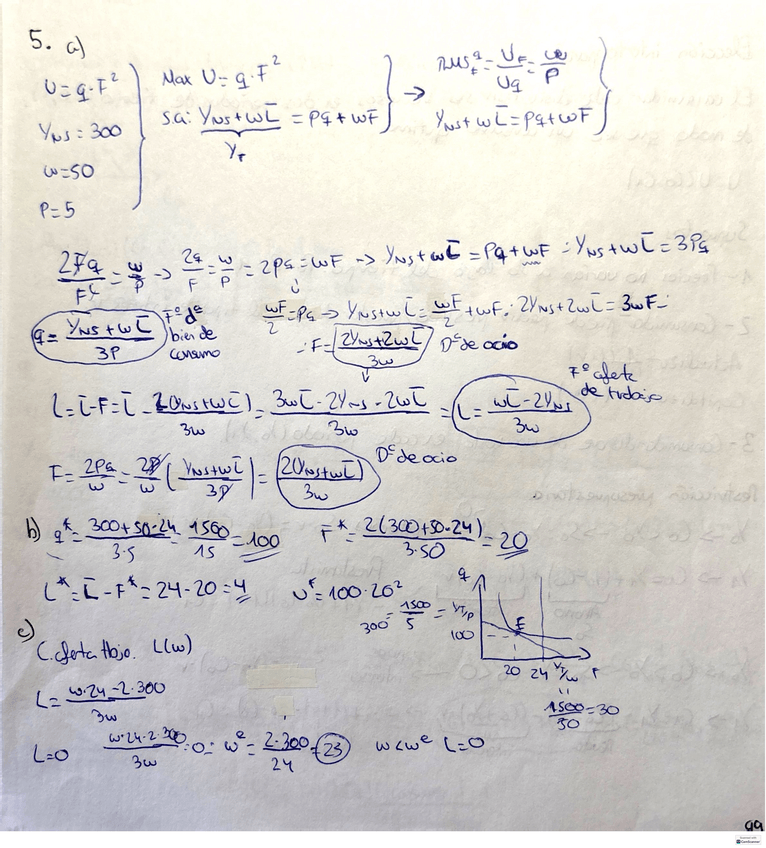 5. a)
U = q·F²
Y_NS = 300
w = 50
P = 5
Max U = q·F²
sa: Y_NS + wL̄ = Pq + wF̄
Y_T
→ RMS = U_F/U_q = w/P
Y_NS + wL̄ = Pq + wF̄
2Fq/F² = w/P → 2q/F = w/P = 2Pq = wF → Y_NS + wL̄ = Pq + wF ∴ Y_NS + wL̄ = 3Pq
q = (Y_NS + wL̄)/3P Fº dº bien de consumo
wF/2 = Pq → Y_NS + wL̄ = wF/2 + wF ∴ 2Y_NS + 2wL̄ = 3wF
∴ F = (2Y_NS + 2wL̄)/3w Dº de ocio
L = L̄ - F = L̄ - 2(Y_NS + wL̄)/3w = (3wL̄ - 2Y_NS - 2wL̄)/3w = L = (wL̄ - 2Y_NS)/3w Fº oferta de trabajo
F = 2Pq/w = 2P/w ((Y_NS + wL̄)/3P) = 2(Y_NS + wL̄)/3w Dº de ocio
b) q* = (300 + 50·24)/3·5 = 1500/15 = 100 F* = 2(300 + 50·24)/3·50 = 20
L* = L̄ - F* = 24 - 20 = 4 U* = 100·20²
300 = 1500/5 = Y_T/P
q
E
100
20 24 Y_T/w F
1500/50 = 30
c)
C. oferta tbajo. L(w)
L = (w·24 - 2·300)/3w
L=0 (w·24 - 2·300)/3w = 0 = wᵉ = 2·300/24 = 25 w < wᵉ L=0
99
CamScanner